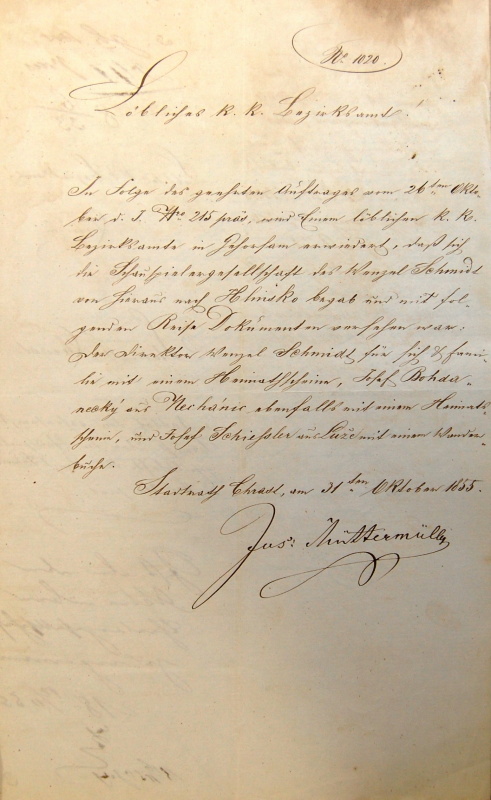 No 1020.
Löbliches k. k. Bezirksamt!
In Folge des geehrten Auftrages vom 26ten Okto-
ber d. J. Nro 215 präs, wird Einem löblichen k. k.
Bezirksamte in Gehorsam erwiedert, daß sich
die Schauspielergesellschaft des Wenzel Schmidt
von hieraus nach Hlinsko begab und mit fol-
genden Reise Dokumenten versehen war:
Der Direktor Wenzel Schmidt für sich & Fami-
lie mit einem Heimathscheine, Josef Bohda-
necký aus Nechánic ebenfalls mit einem Heimats-
schein, und Josef Schiessler aus Luže mit einem Wander-
buche.
Stadtrath Chrast, am 31ten Oktober 1855.
Jos: Muttermüller